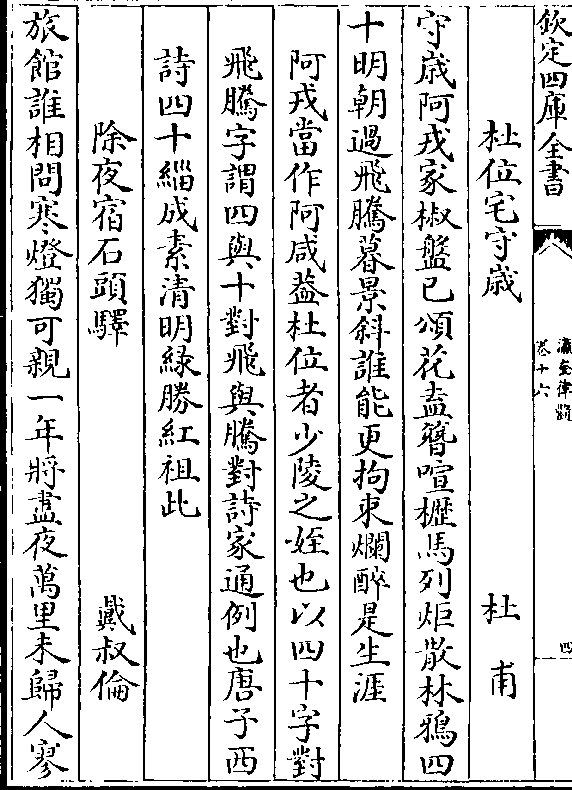 欽定四庫全書
瀛奎律髓
卷十六
四
杜位宅守歳 杜甫
守歳阿戎家椒盤已頌花盍簪喧櫪馬列炬散林鴉四
十明朝過飛騰暮景斜誰能更拘束爛醉是生涯
阿戎當作阿咸葢杜位者少陵之姪也以四十字對
飛騰字謂四與十對飛與騰對詩家通例也唐子西
詩四十緇成素清明緑勝紅祖此
除夜宿石頭驛 戴叔倫
旅館誰相問寒燈獨可親一年將盡夜萬里未歸人寥